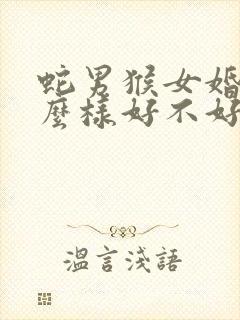 蛇男猴女婚
麼樣好不好
溫言淺語